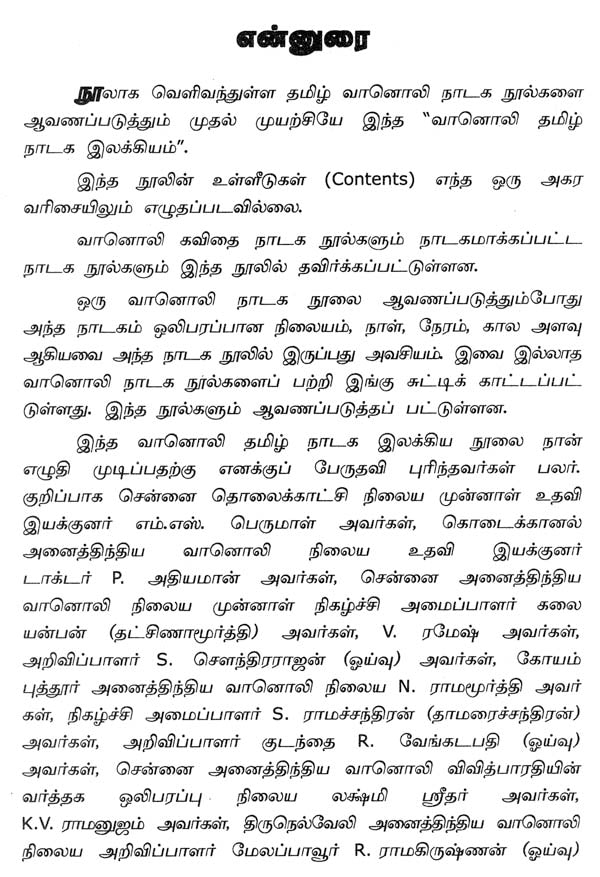 என்னுரை
நூலாக வெளிவந்துள்ள தமிழ் வானொலி நாடக நூல்களை
ஆவணப்படுத்தும் முதல் முயற்சியே இந்த “வானொலி தமிழ்
நாடக இலக்கியம்”.
இந்த நூலின் உள்ளீடுகள் (Contents) எந்த ஒரு அகர
வரிசையிலும் எழுதப்படவில்லை.
வானொலி கவிதை நாடக நூல்களும் நாடகமாக்கப்பட்ட
நாடக நூல்களும் இந்த நூலில் தவிர்க்கப்பட்டுள்ளன.
ஒரு வானொலி நாடக நூலை ஆவணப்படுத்தும்போது
அந்த நாடகம் ஒலிபரப்பான நிலையம், நாள், நேரம், கால அளவு
ஆகியவை அந்த நாடக நூலில் இருப்பது அவசியம். இவை இல்லாத
வானொலி நாடக நூல்களைப் பற்றி இங்கு சுட்டிக் காட்டப்பட்
டுள்ளது. இந்த நூல்களும் ஆவணப்படுத்தப் பட்டுள்ளன.
இந்த வானொலி தமிழ் நாடக இலக்கிய நூலை நான்
எழுதி முடிப்பதற்கு எனக்குப் பேருதவி புரிந்தவர்கள் பலர்.
குறிப்பாக சென்னை தொலைக்காட்சி நிலைய முன்னாள் உதவி
இயக்குனர் எம்.எஸ். பெருமாள் அவர்கள், கொடைக்கானல்
அனைத்திந்திய வானொலி நிலைய உதவி இயக்குனர்
டாக்டர் P. அதியமான் அவர்கள், சென்னை அனைத்திந்திய
வானொலி நிலைய முன்னாள் நிகழ்ச்சி அமைப்பாளர் கலை
யன்பன் (தட்சிணாமூர்த்தி) அவர்கள், V. ரமேஷ் அவர்கள்,
அறிவிப்பாளர் S. சௌந்திரராஜன் (ஓய்வு) அவர்கள், கோயம்
புத்தூர் அனைத்திந்திய வானொலி நிலைய N. ராமமூர்த்தி அவர்
கள், நிகழ்ச்சி அமைப்பாளர் S. ராமச்சந்திரன் (தாமரைச்சந்திரன்)
அவர்கள், அறிவிப்பாளர் குடந்தை R. வேங்கடபதி (ஓய்வு)
அவர்கள், சென்னை அனைத்திந்திய வானொலி விவித்பாரதியின்
வர்த்தக ஒலிபரப்பு நிலைய லக்ஷ்மி ஸ்ரீதர் அவர்கள்,
K.V. ராமனுஜம் அவர்கள், திருநெல்வேலி அனைத்திந்திய வானொலி
நிலைய அறிவிப்பாளர் மேலப்பாவூர் R. ராமகிருஷ்ணன் (ஓய்வு)